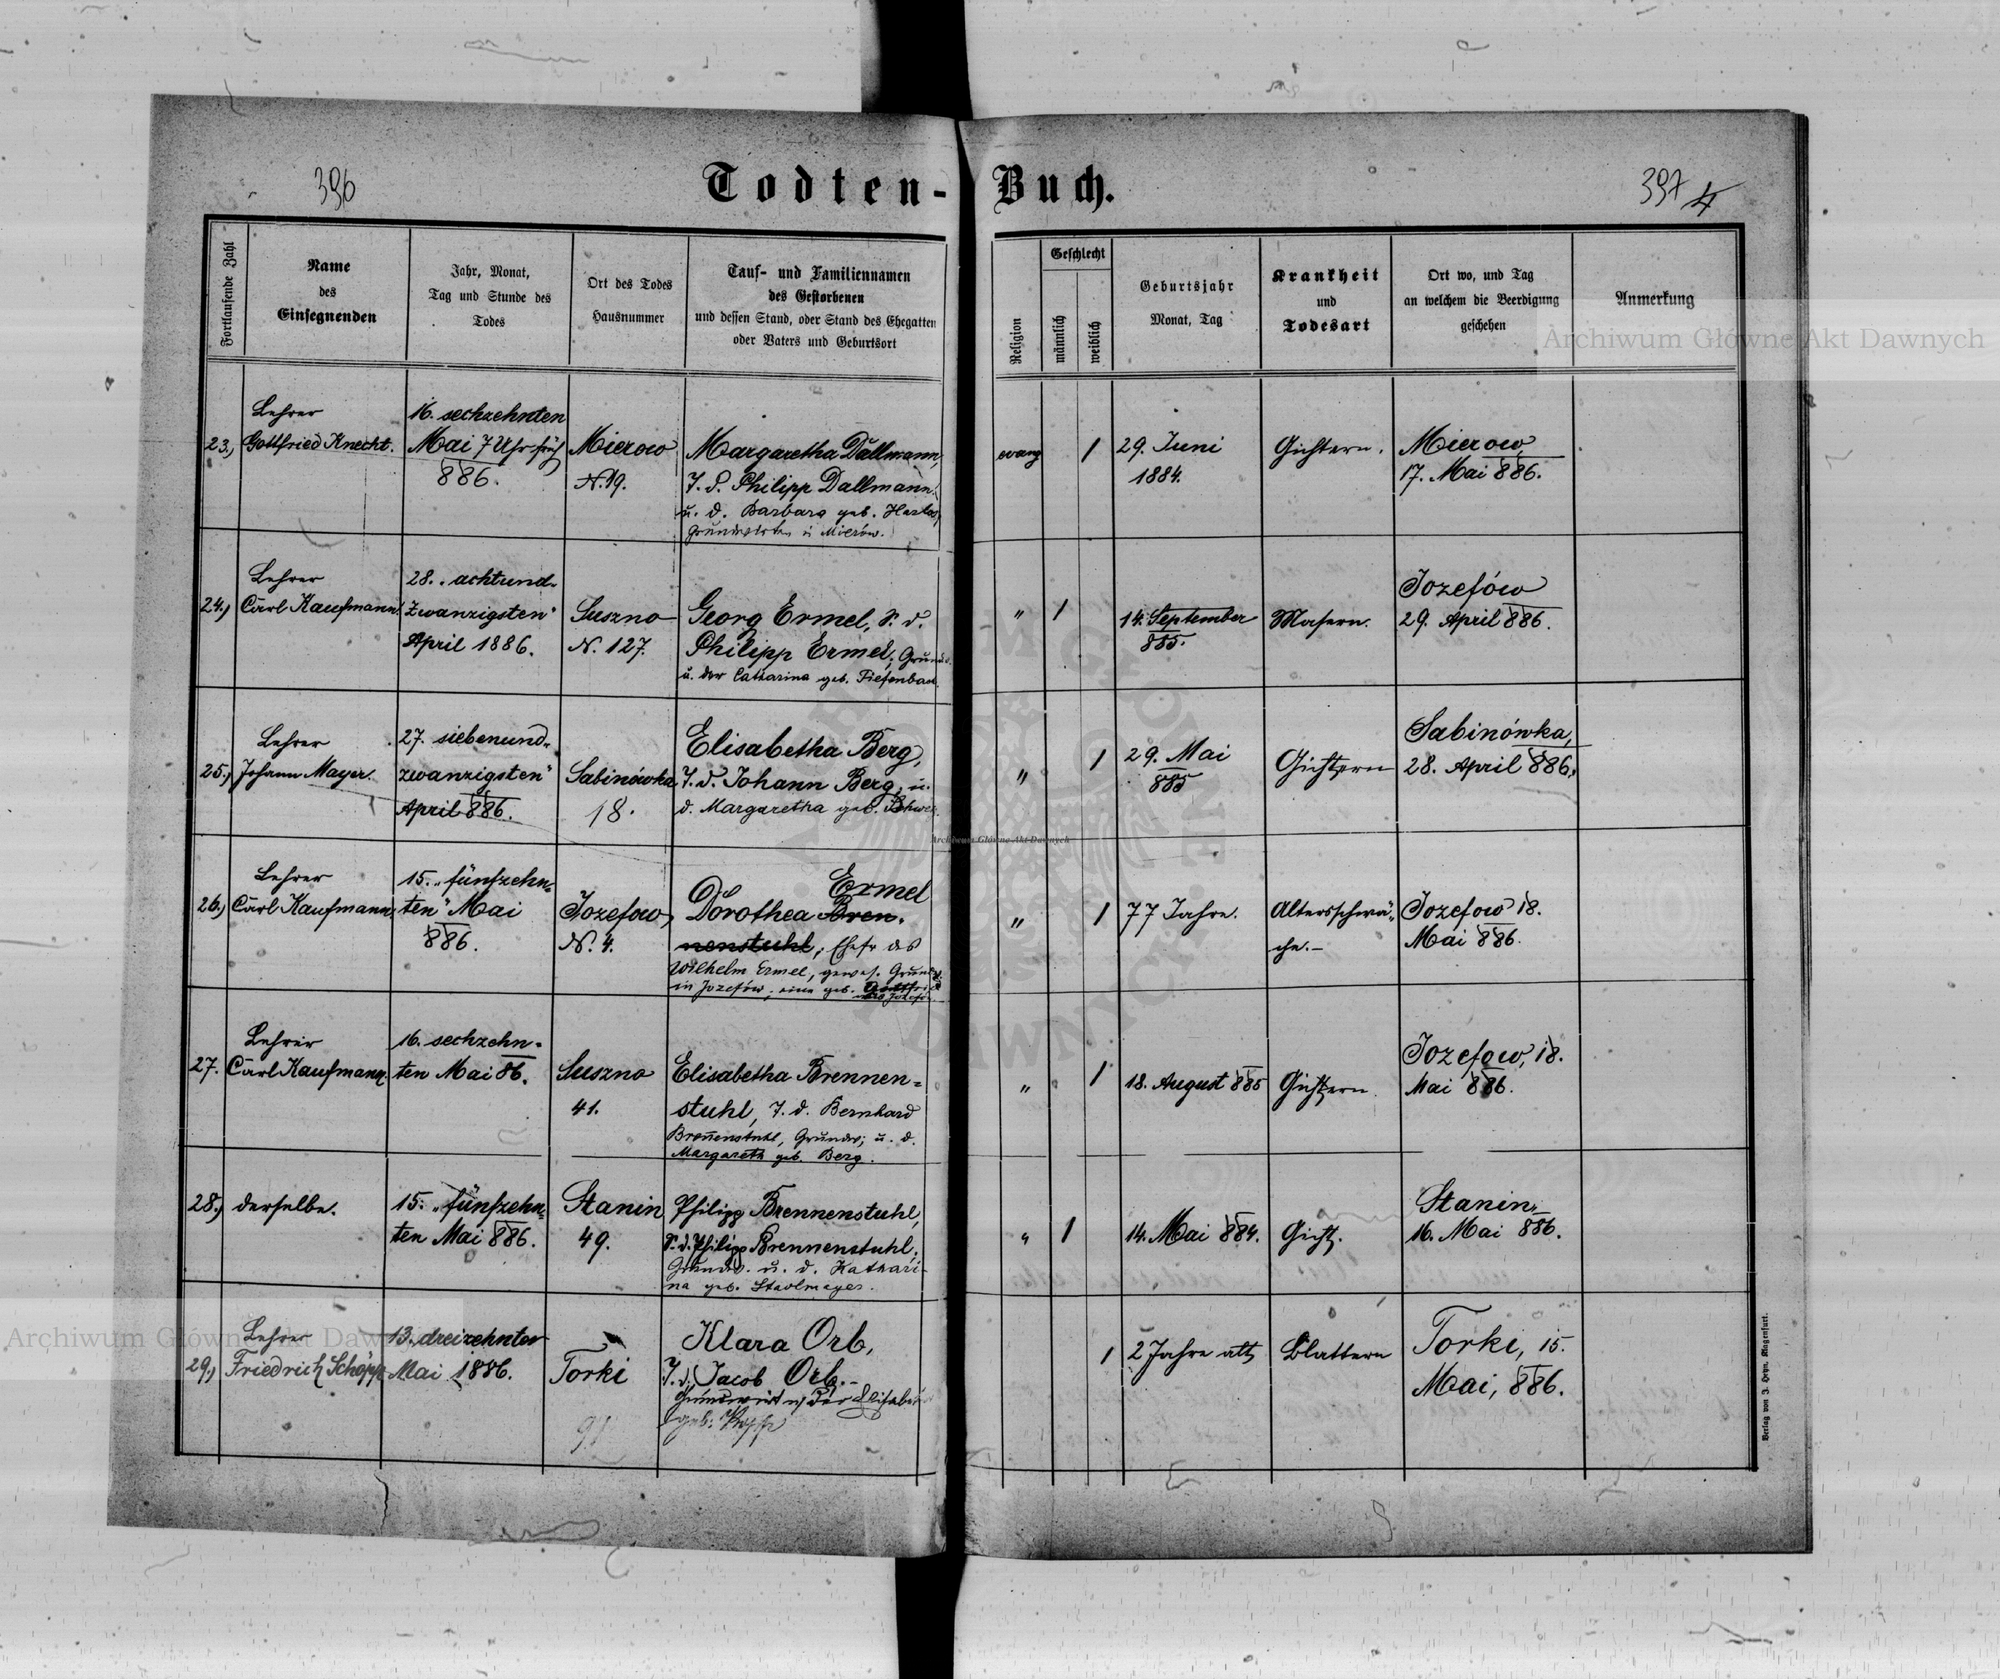 396
Todten-Buch.
397
4
Fortlaufende Zahl
Name
des
Einsegnenden
Jahr, Monat,
Tag und Stunde des
Todes
Ort des Todes
Hausnummer
Tauf- und Familiennamen
des Gestorbenen
und dessen Stand, oder Stand des Ehegatten
oder Vaters und Geburtsort
Religion
Geschlecht
männlich
weiblich
Geburtsjahr
Monat, Tag
Krankheit
und
Todesart
Ort wo, und Tag
an welchem die Beerdigung
geschehen
Anmerkung
23.)
Lehrer
Gottfried Knecht.
16. sechzehnten
Mai 7 Uhr früh
886.
Mierow
N. 19.
Margaretha Dallmann,
T. d. Philipp Dallmann
u. d. Barbara geb.
in Mierów.
evang
1
29. Juni
1884.
Gichtern.
Mierow,
17. Mai 886.
24.)
Lehrer
Carl Kaufmann.
28. „achtund-
zwanzigsten"
April 1886.
Suszno
N. 127.
Georg Ermel, S. d.
Philipp Ermel, Grundw.
u. der Catharina geb. Tiefenbach.
"
1
14. September
885.
Masern.
Jozefów
29. April 886.
25.)
Lehrer
Johann Mayer.
27. siebenund-
zwanzigsten"
April 886.
Sabinówka
18.
Elisabetha Berg,
T. d. Johann Berg, u.
d. Margaretha geb.
"
1
29. Mai
885
Gichtern
Sabinówka,
28. April 886.
26.)
Lehrer
Carl Kaufmann.
15. „fünfzehn-
ten" Mai
886.
Jozefow,
N. 4.
Ermel
Dorothea Bren-
nenstuhl, Ehefr des
Wilhelm Ermel, gewes. Grundw.
in Jozefów, eine geb.
"
1
77 Jahre.
Altersschwä-
che.-
Jozefow 18.
Mai 886.
27.
Lehrer
Carl Kaufmann.
16. sechzehn-
ten Mai 86.
Suszno
41.
Elisabetha Brennen-
stuhl, T. d. Bernhard
Brennenstuhl, Grundw; u. d.
Margareth geb. Berg.
"
1
18. August 885
Gichtern.
Jozefow, 18.
Mai 886.
28.)
derselbe.
15. „fünfzehn-
ten Mai 886.
Stanin
49.
Philipp Brennenstuhl,
S. d. Philipp Brennenstuhl,
Grundw. u. d. Kathari-
na geb.
"
1
14. Mai 884.
Gicht.
Stanin,
16. Mai 886.
29.)
Lehrer
Friedrich Schöpp
13. dreizehnten
Mai 1886.
Torki
Klara Orb,
T. d. Jacob Orb.-
Grundwirt u. der Elisabeth
geb.
1
2 Jahre alt
Blattern
Torki, 15.
Mai, 886.
Verlag von J. Heyn, Klagenfurt.
Archiwum Główne Akt Dawnych
Archiwum Główne Akt Dawnych
Archiwum Główne Akt Dawnych